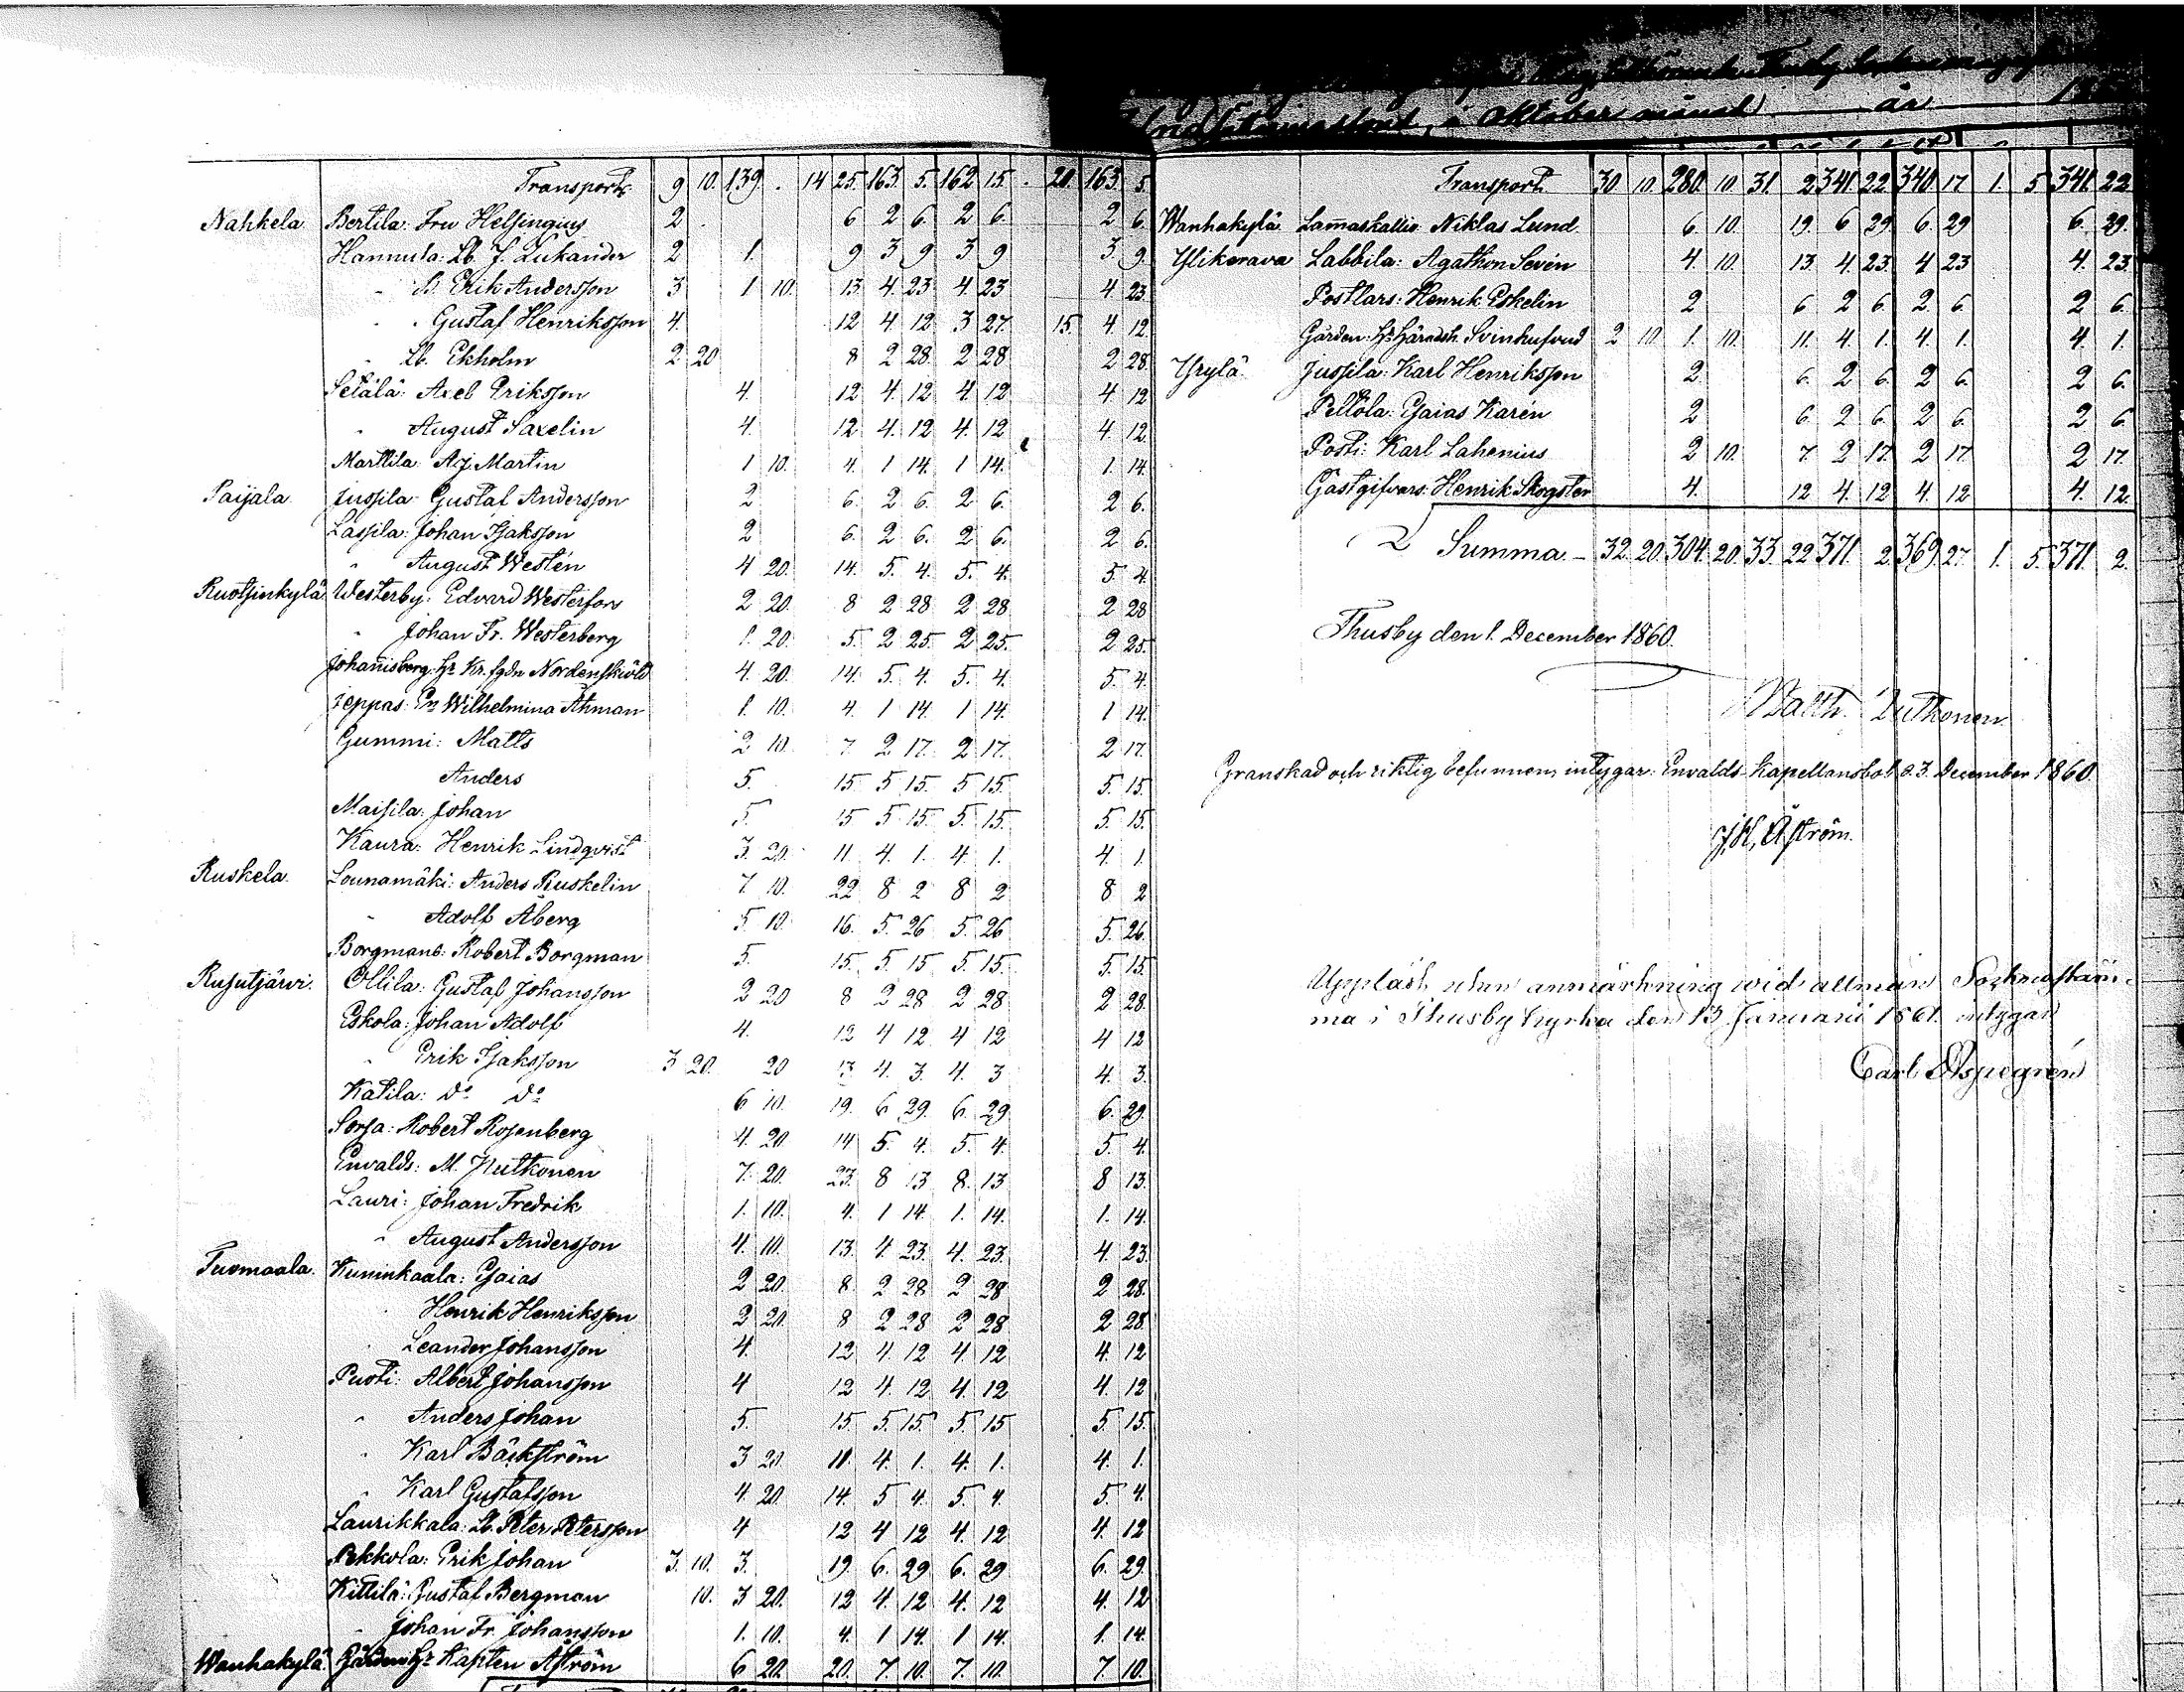 Transport 9 10. 139 . 14 25. 163. 5. 162 15. . 20. 163. 5.
Nahkela. Bertila: Fru Helsingius 2 6 2 6. 2 6. 2 6.
Hannula: Lb. J. Lukander 2 1. 9 3 9 3 9 3 9.
" B. Erik Andersson 3 1 10. 13 4 23 4 23 4 23
" " Gustaf Henriksson 4. 12 4 12 3 27. 15. 4 12
" Lb. Ekholm 2 20 8 2 28. 2 28 2 28
Setälä: Axel Eriksson 4. 12 4. 12 4 12 4 12
" August Saxelin 4. 12 4. 12 4. 12 4. 12.
Marttila: Aj. Martin 1 10. 4. 1 14. 1 14. 1. 14.
Paijala. Jussila: Gustaf Andersson 2 6. 2 6. 2 6. 2 6.
Lassila: Johan Isaksson 2 6. 2 6. 2 6. 2 6.
" August Westén 4 20. 14. 5. 4. 5. 4. 5. 4.
Ruotsinkylä Westerby: Edvard Westerfors 2 20. 8 2 28 2 28 2 28
" Johan Fr. Westerberg 1. 20. 5. 2 25. 2 25. 2 25.
Johannisberg: Hr Kr. fgdn Nordenskiöld 4. 20. 14. 5. 4. 5. 4. 5. 4.
Jeppas: En Wilhelmina Åhman 1. 10. 4. 1 14. 1 14. 1 14.
Gummi: Matts 2 10. 7 2 17. 2 17. 2 17.
Anders 5. 15 5 15. 5 15. 5. 15.
Maisila: Johan 5. 15 5 15. 5. 15. 5. 15.
Kaura: Henrik Lindqvist 3. 20. 11 4. 1. 4. 1. 4. 1.
Ruskela. Lounamäki: Anders Ruskelin 7 10. 22 8 2 8 2 8 2
" Adolf Åberg 5. 10. 16. 5. 26 5. 26 5. 26.
Borgmans: Robert Borgman 5. 15. 5. 15 5. 15. 5. 15.
Rusutjärvi. Ollila: Gustaf Johansson 2 20 8 2 28 2 28. 2 28.
Eskola: Johan Adolf 4. 12 4 12 4 12 4 12
" Erik Isaksson 3 20. 20 13 4. 3. 4. 3 4. 3.
Katila: do do 6 10. 19. 6 29. 6. 29. 6. 29.
Sorsa: Robert Rosenberg 4. 20. 14 5. 4. 5. 4. 5. 4.
Envalds: M. Hutkonen 7. 20. 23. 8 13 8. 13. 8 13.
Lauri: Johan Fredrik 1. 10. 4. 1 14. 1. 14. 1. 14.
" August Andersson 4. 10. 13. 4. 23. 4. 23. 4 23.
Tuomaala. Kuninkaala: Esaias 2 20. 8. 2 28 2 28 2 28.
" Henrik Henriksson 2 20. 8 2 28 2 28 2 28.
" Leander Johansson 4. 12 4. 12 4. 12 4. 12
Puoti: Albert Johansson 4 12 4. 12 4. 12 4. 12
" Anders Johan 5. 15. 5. 15. 5. 15 5. 15.
" Karl Bäckström 3 20. 11. 4. 1. 4. 1. 4. 1.
" Karl Gustafsson 4. 20. 14. 5 4. 5. 4. 5. 4.
Laurikkala: Lb. Peter Petersson 4 12 4 12 4. 12 4. 12
Pekkola: Erik Johan 3. 10. 3. 19. 6. 29 6. 29 6. 29.
Kittilä: Gustaf Bergman 10. 3 20. 12 4. 12 4. 12 4. 12
" Johan Fr. Johansson 1. 10. 4. 1 14. 1 14. 1. 14.
Wanhakylä. Gården Hr Kapten Åström 6 20. 20. 7. 10. 7. 10. 7. 10.
Oktober månad år
Transport. 30 10. 280. 10. 31. 2 341. 22 340. 17 1. 5 341. 22.
Wanhakylä Lam̄askallio Niklas Lund. 6. 10. 19. 6 29. 6. 29 6. 29.
Ylikerava Labbila: Agathon Sevén 4. 10. 13. 4. 23. 4 23 4. 23.
Postlars: Henrik Eskelin 2 6 2 6. 2. 6. 2 6.
Gården: Hr Häradsh. Svinhufvud 2 10. 1. 10. 11. 4. 1. 4. 1. 4. 1.
Hyrylä Jussila: Karl Henriksson 2 6. 2 6. 2 6. 2 6.
Pellola: Esaias Karén 2 6. 2 6. 2 6. 2 6.
Posti: Karl Lahenius 2 10. 7. 2 17. 2 17. 2 17.
Gästgifvars: Henrik Skogster 4. 12 4. 12 4. 12 4. 12.
Summa 32. 20. 304. 20. 33. 22 371. 2. 369. 27. 1. 5. 371. 2.
Thusby den 1. December 1860.
Balth. Hutkonen
Granskad och riktig befunnen intygar: Envalds Kapellansbol d. 3. December 1860.
J.H. Åström.
Uppläst utan anmärkning wid allmän Sockenstäm-
ma i Thusby kyrka den 13 Januarii 1861. intygar
Carl Aspegrén